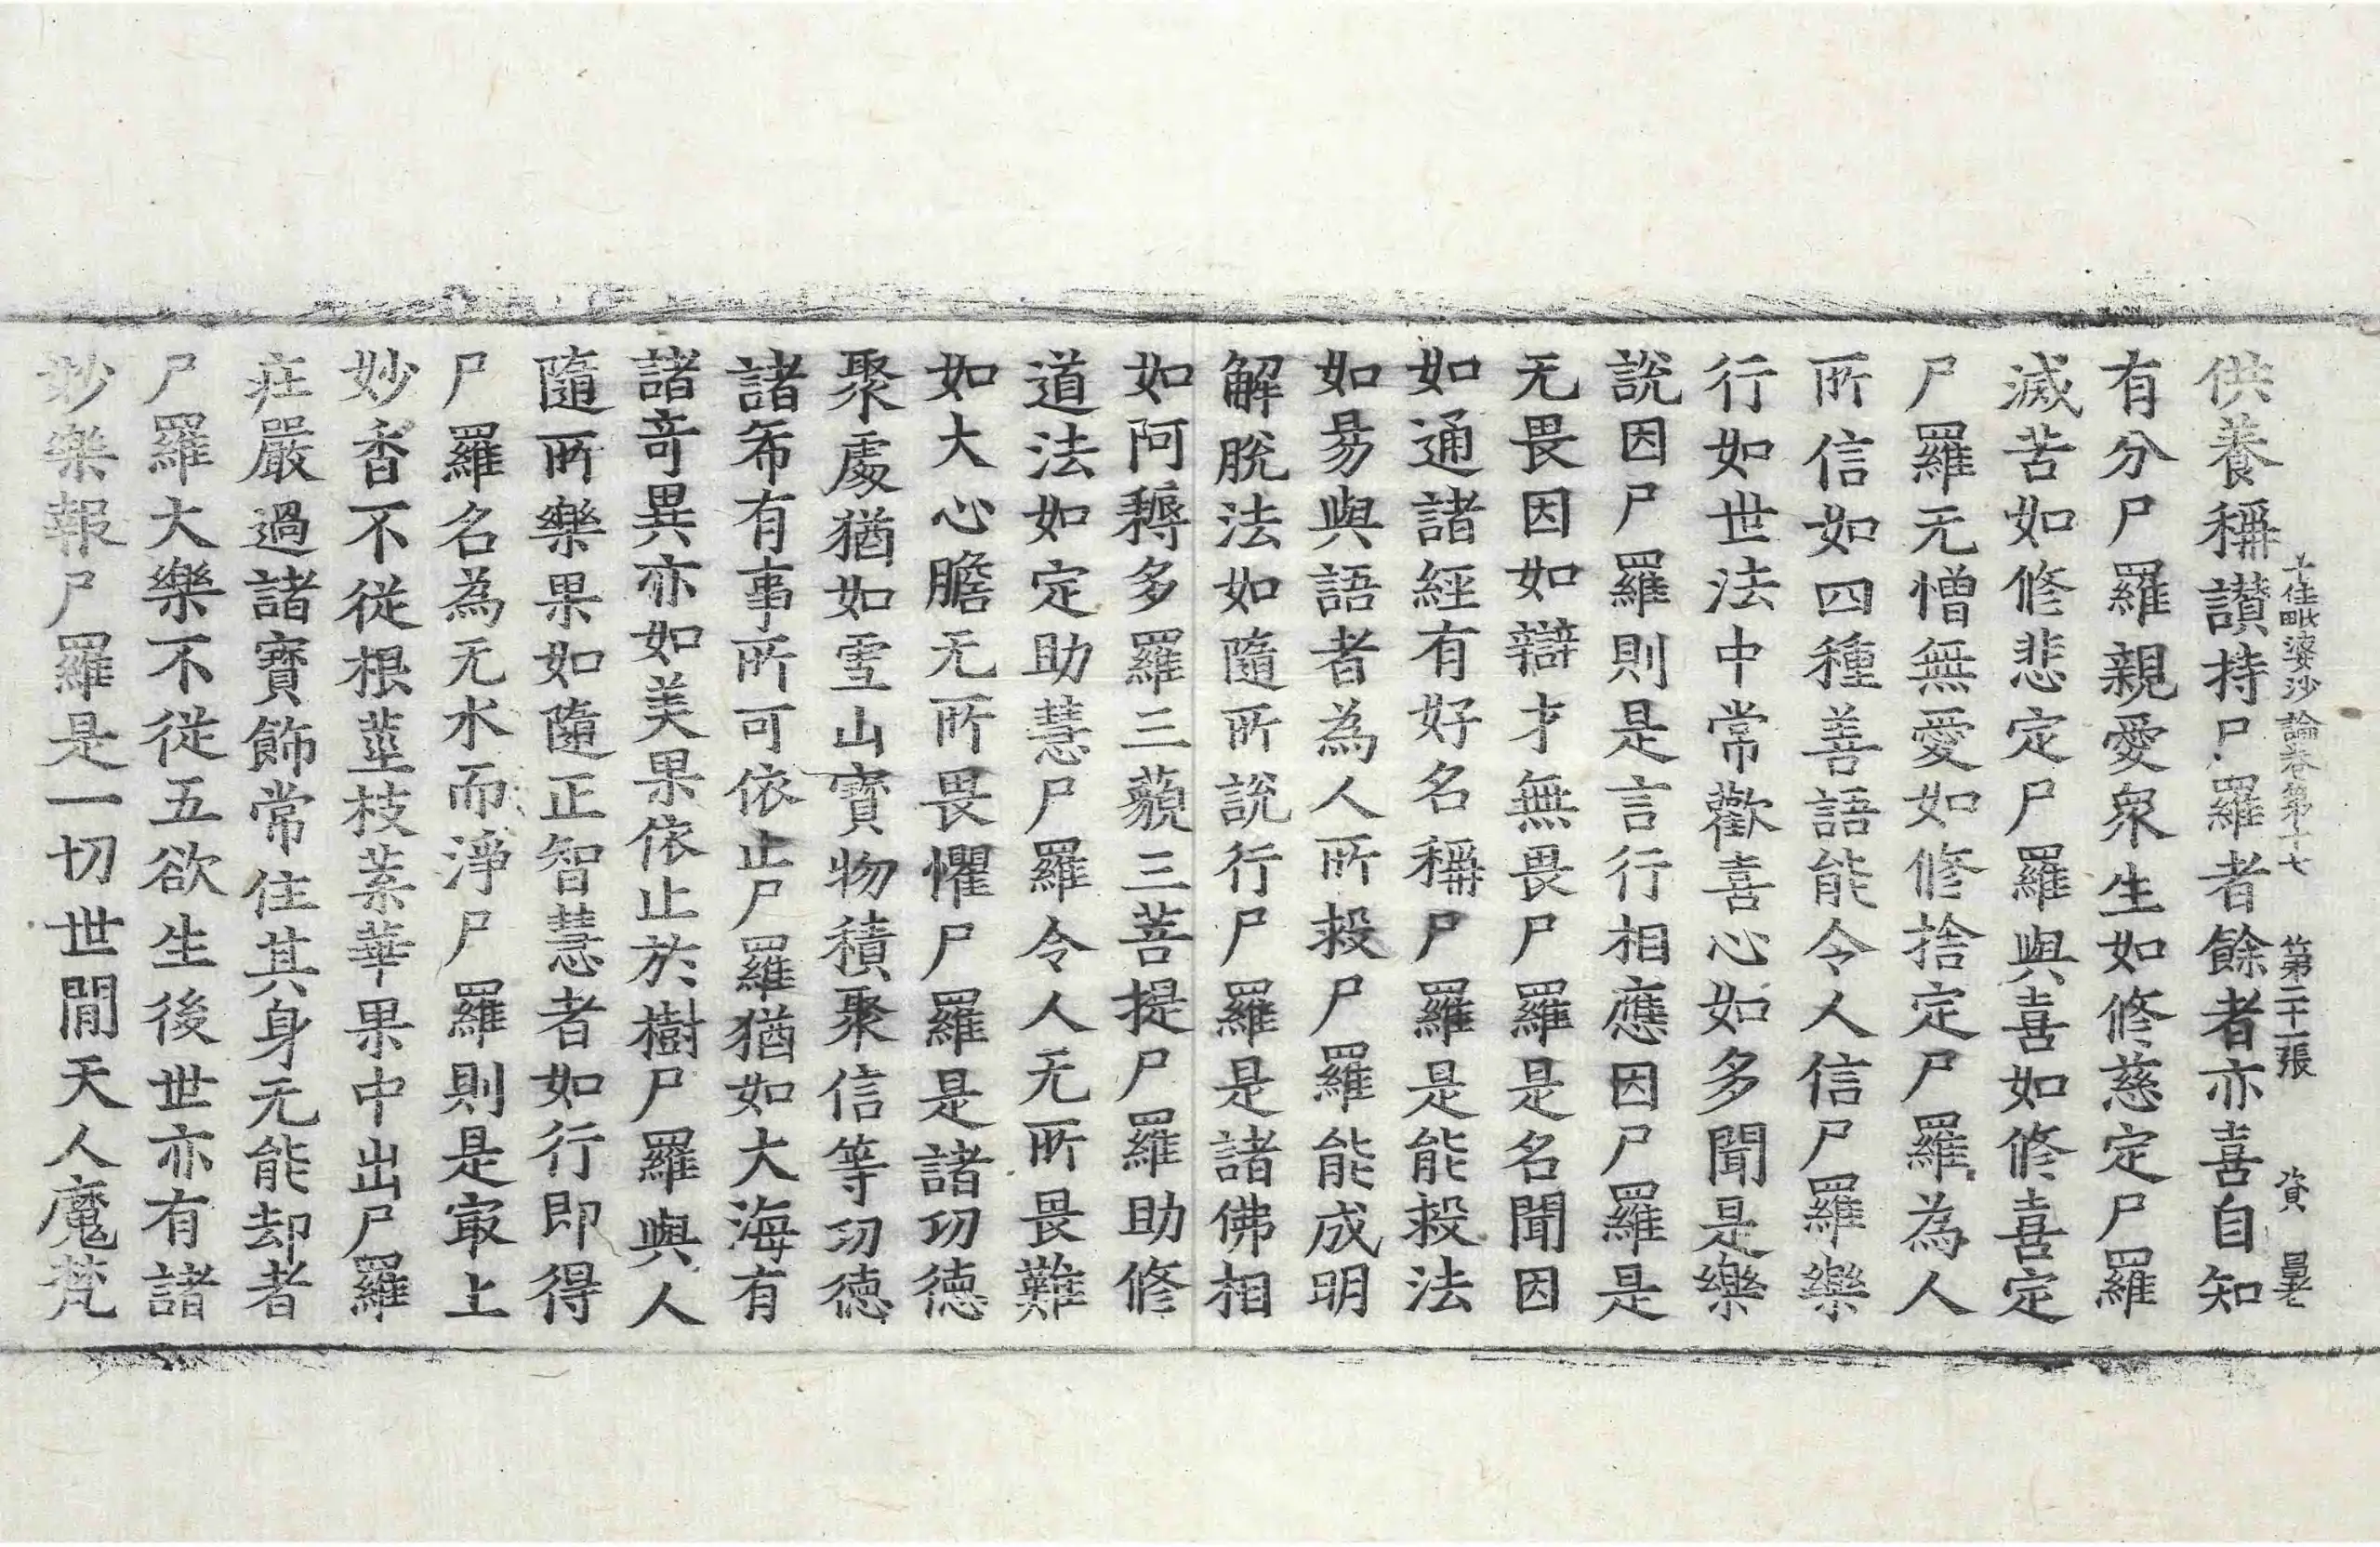 十住毗婆沙論卷第十七 第二十一張 資
供養稱讃持尸羅者餘者亦喜自知
有分尸羅親愛衆生如修慈定尸羅
滅苦如修悲定尸羅與喜如修喜定
尸羅无憎無愛如修捨定尸羅為人
所信如四種善語能令人信尸羅樂
行如世法中常歡喜心如多聞是樂
說因尸羅則是言行相應因尸羅是
无畏因如辯才無畏尸羅是名聞因
如通諸經有好名稱尸羅是能救法
如易與語者為人所救尸羅能成明
解脫法如隨所說行尸羅是諸佛相
如阿耨多羅三藐三菩提尸羅助修
道法如定助慧尸羅令人无所畏難
如大心膽无所畏懼尸羅是諸功德
聚處猶如雪山寶物積聚信等功德
諸希有事所可依止尸羅猶如大海有
諸奇異亦如美果依止於樹尸羅與人
隨所樂果如隨正智慧者如行即得
尸羅名為无水而淨尸羅則是㝡上
妙香不從根莖枝葉華果中出尸羅
莊嚴過諸寶飾常住其身无能却者
尸羅大樂不從五欲生後世亦有諸
妙樂報尸羅是一切世閒天人魔梵